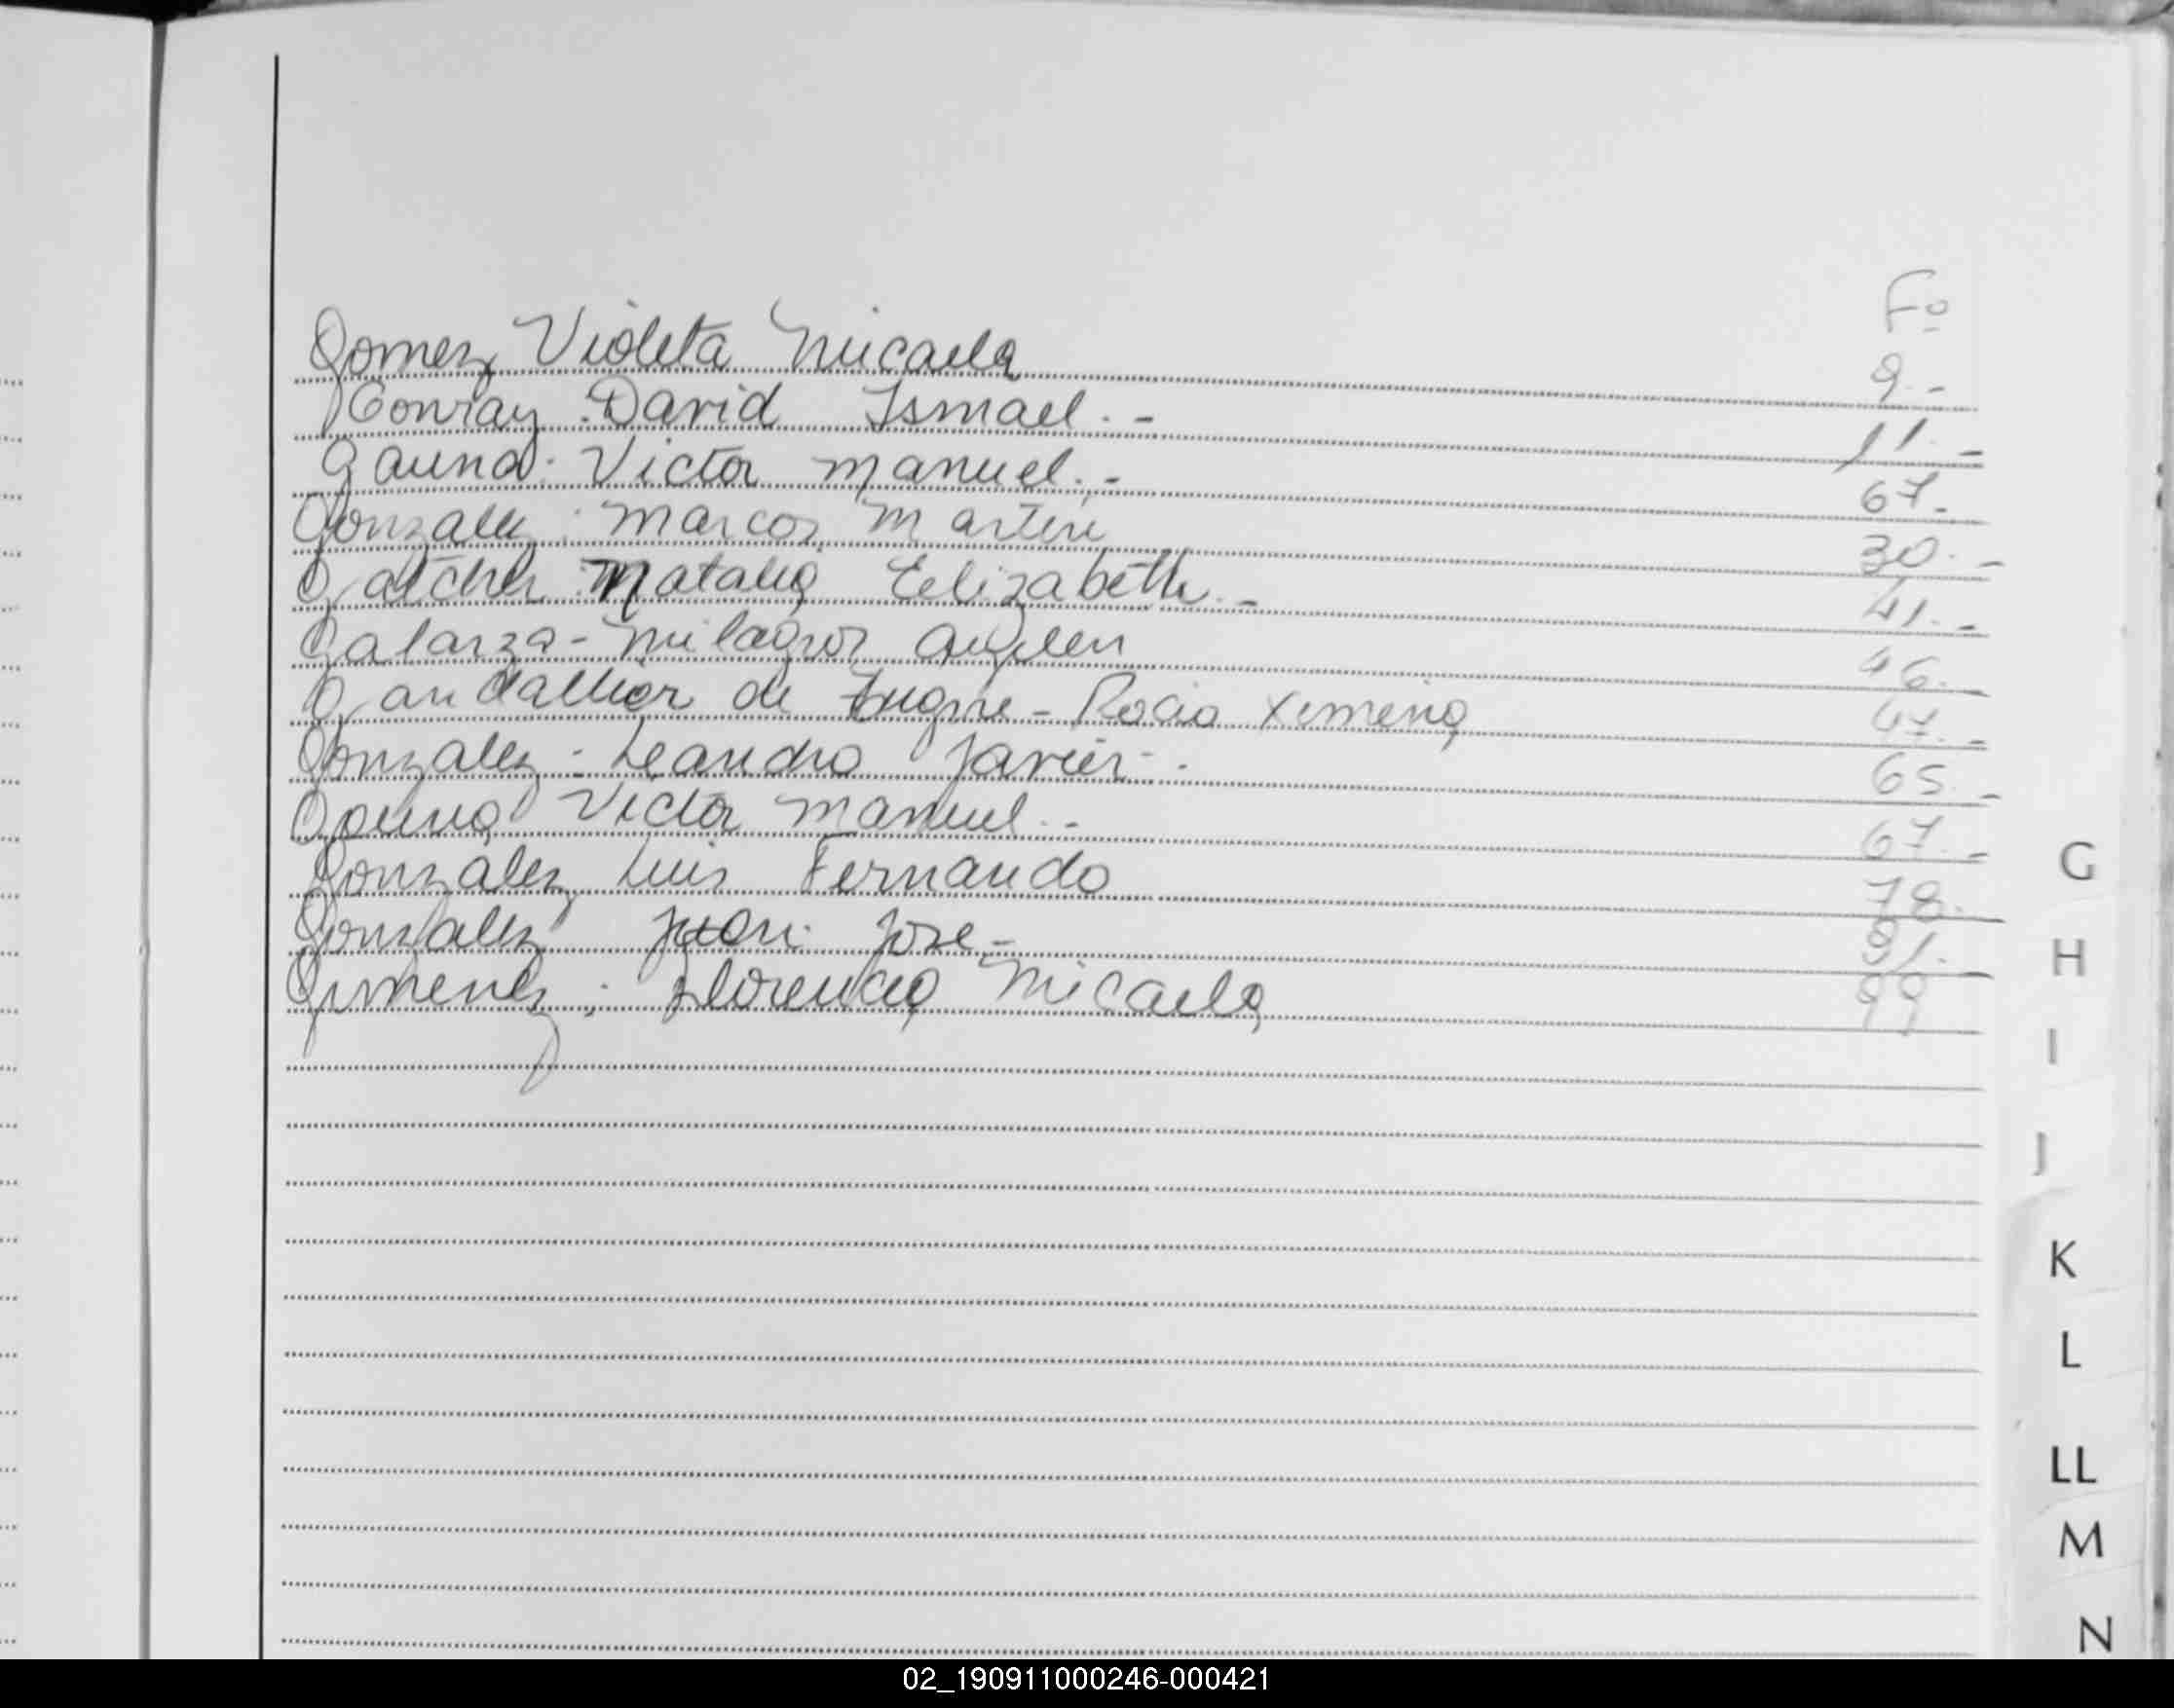 Fº
Gomez Violeta Micaela 9.-
Gonray. David Ismael.- 11.-
Gauna. Victor Manuel.- 67.-
Gonzalez: Marcos Martin 30.-
Natalia Elizabeth.- 41.-
Galarza - Milagros Aylen 46.-
de - Rocio Ximena 47.-
Gonzalez - Leandro Javier.- 65.-
Gauna Victor Manuel.- 67.-
Gonzalez Luis Fernando 78.
Gonzalez Juan Jose- 91.-
Gimenez: Florencia Micaela 99
G
H
I
J
K
L
LL
M
N
02_190911000246-000421